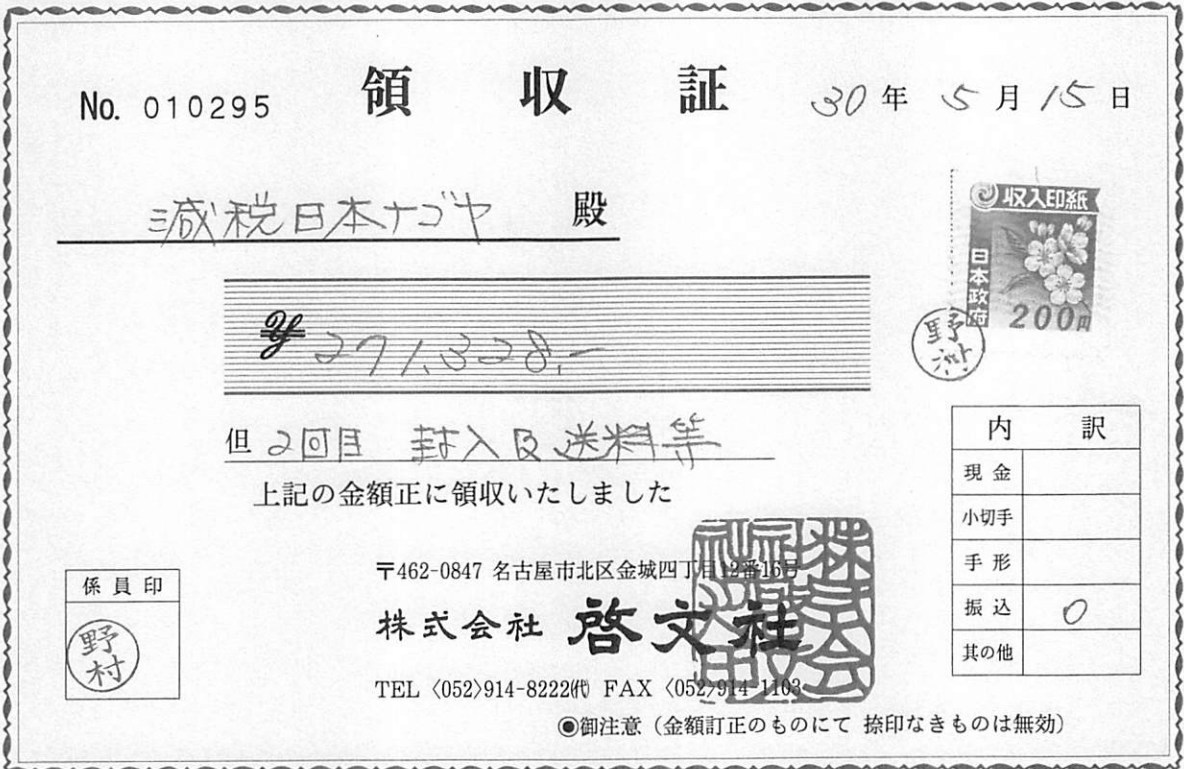 No. 010295
領収証
30年 5月15日
減税日本ナゴヤ 殿
収入印紙
日本政府
200円
野村
¥271,328.-
但 2回目 封入及送料等
上記の金額正に領収いたしました
内訳
現金
小切手
手形
振込 〇
其の他
係員印
野村
〒462-0847 名古屋市北区金城四丁目12番16号
株式会社 啓文社
TEL〈052〉914-8222㈹ FAX〈052〉914-1103
◉御注意(金額訂正のものにて 捺印なきものは無効)